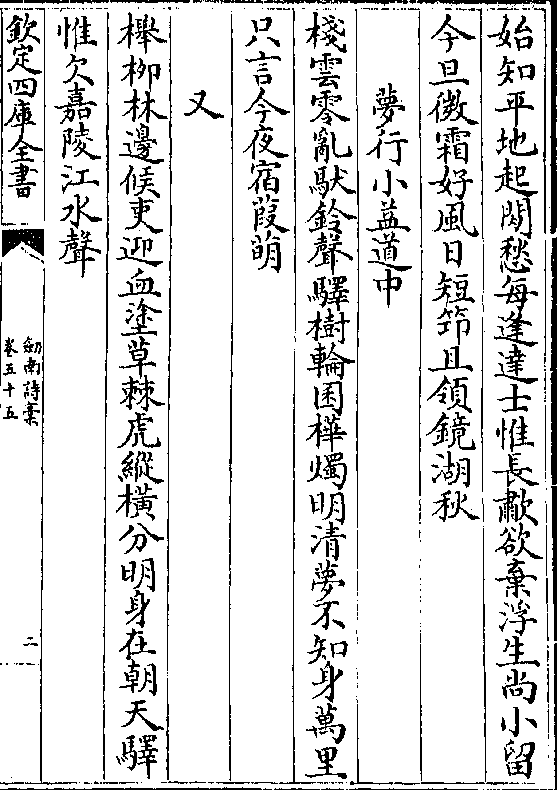 始知平地起閑愁每逢達士惟長歗欲棄浮生尚小留
今旦微霜好風日短笻且領鏡湖秋
夢行小益道中
棧雲零亂䭾鈴聲驛樹輪囷樺燭明清夢不知身萬里
只言今夜宿葭萌
又
櫸桞林邊候吏迎血塗草棘虎縱橫分明身在朝天驛
惟欠嘉陵江水聲
欽定四庫全書
劒南詩稾
卷五十五
二